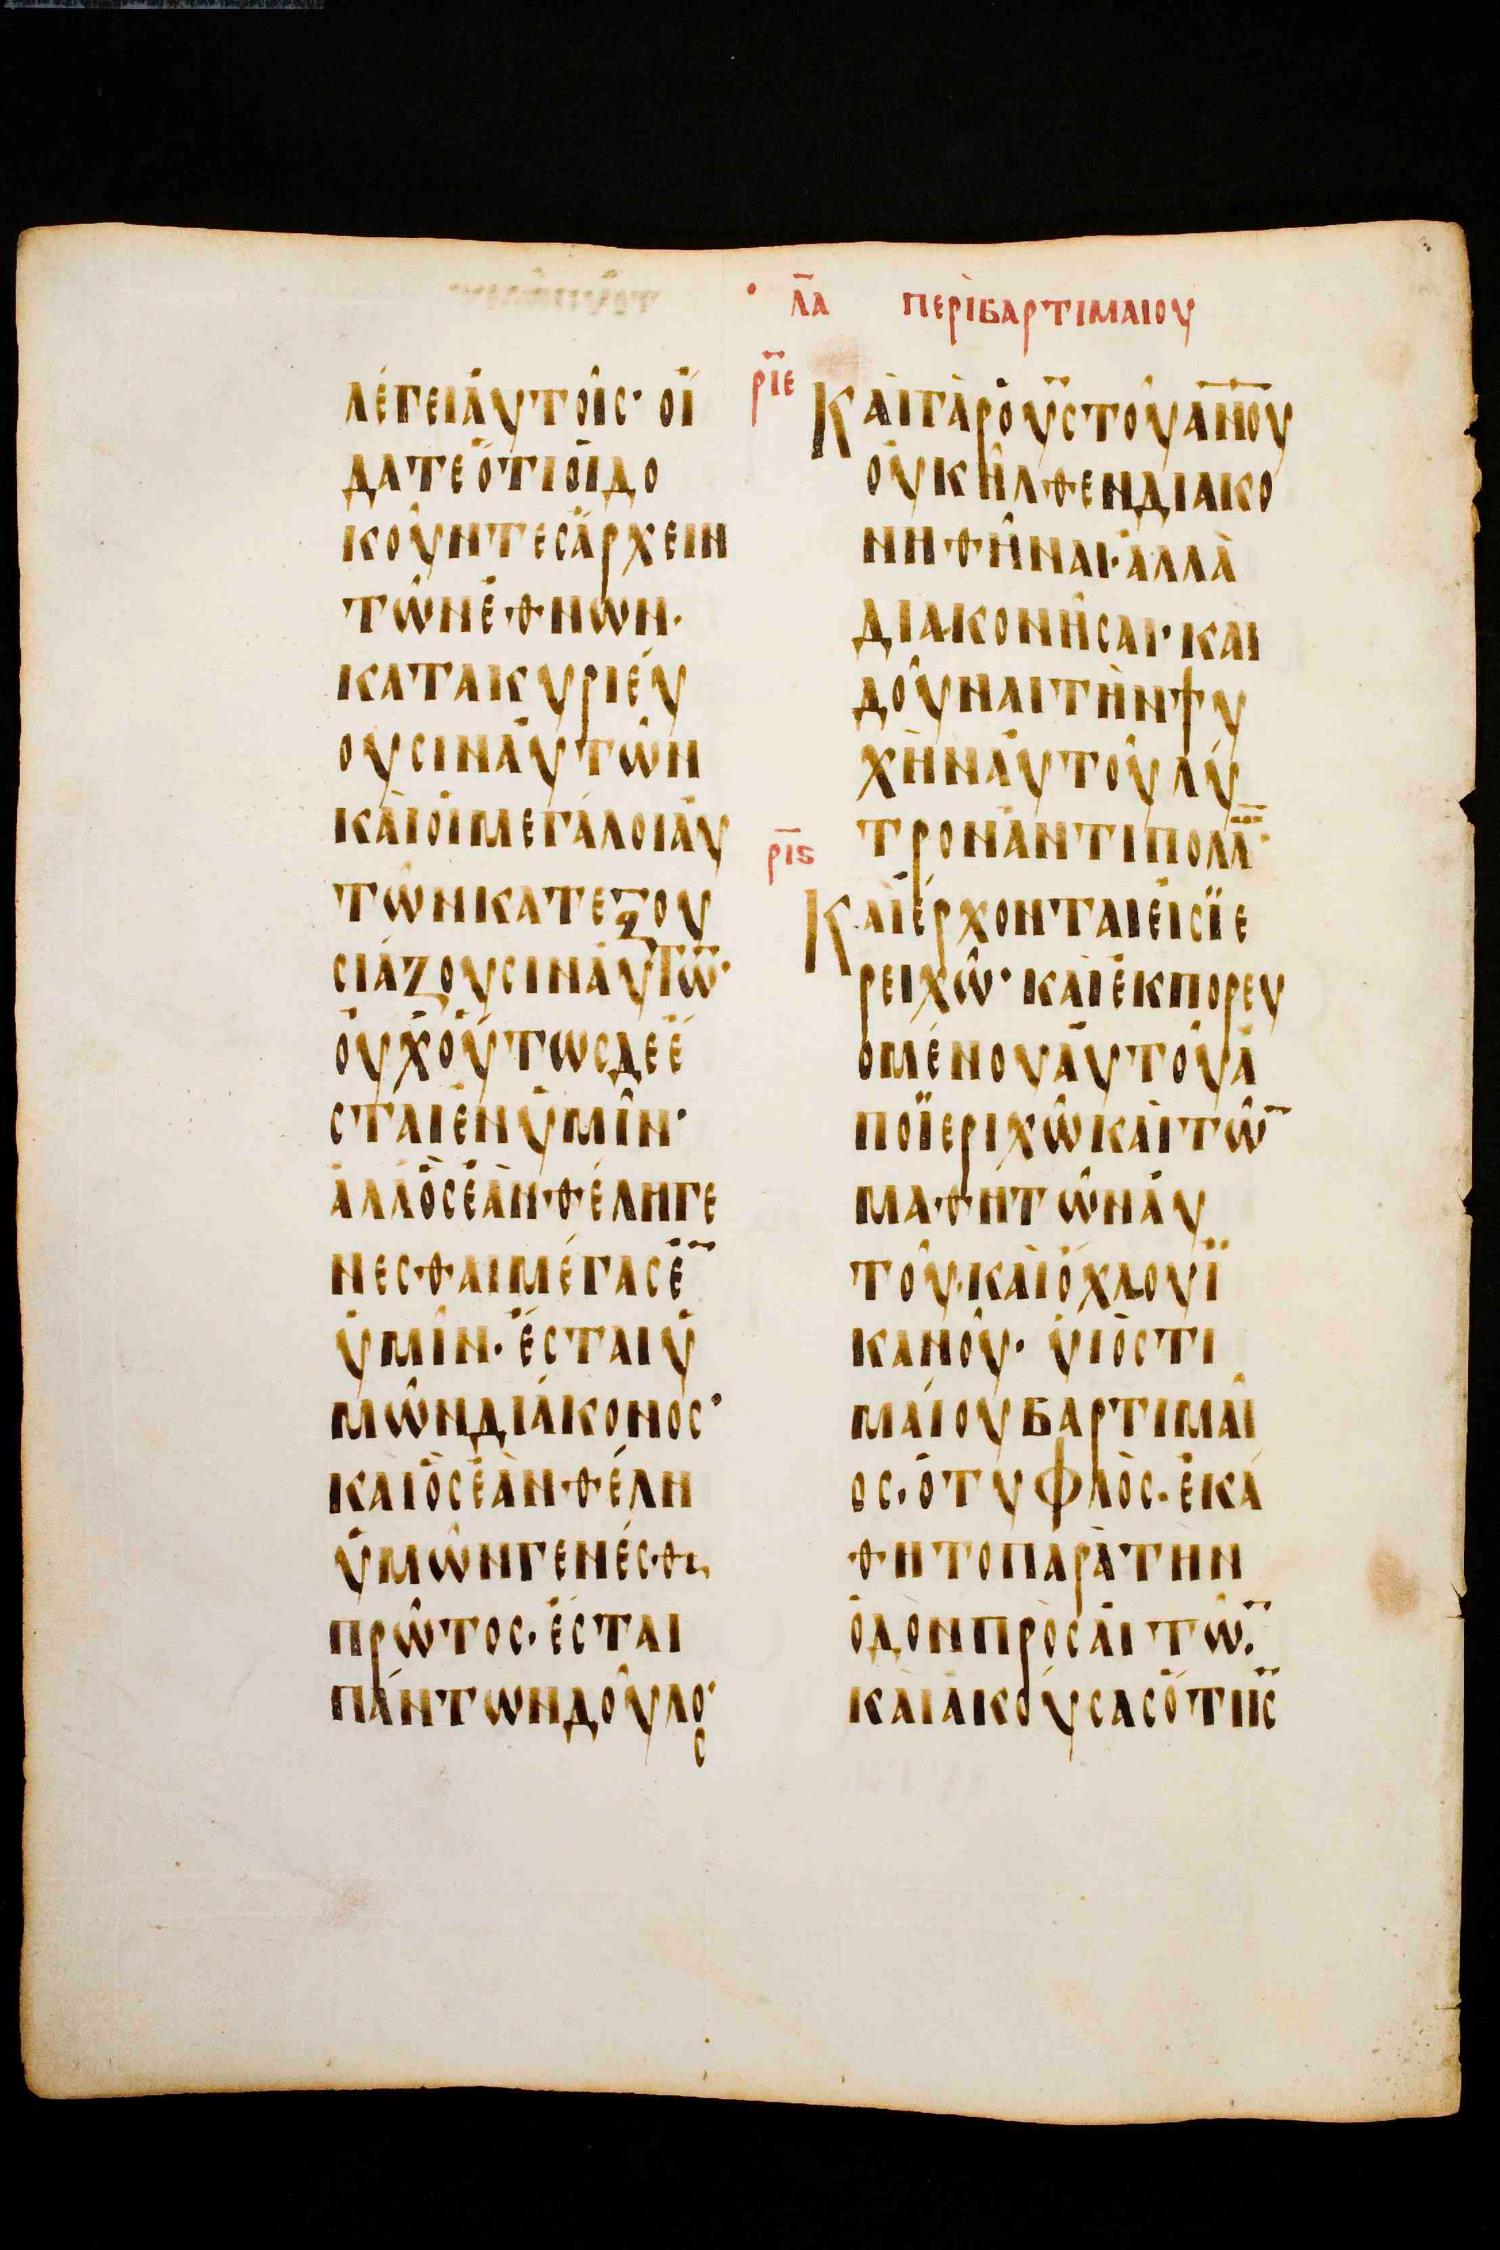 λ̅α̅ περὶ βαρτιμαιου
λέγει ἀυτοῖς· οἴ
δατε ὅτι οἱ δο
κοῦντες ἄρχειν
τῶν ἐθνων·
κατακυριέυ
ουσιν ἀυτῶν
καὶ οἱ μεγάλοι ἀυ
τῶν κατεξου
σιάζουσιν ἀυτῶ̅·
ὀυχ ὀύτως δε ἔ
σται ἐν ὑμῖν·
ἀλλ' ὃς ἐὰν θέλη γε
νεσθαι μέγας ἐ̅
ὑμῖν· ἔσται ὑ
μῶν διάκονος·
καὶ ὃς ἐὰν θέλη
ὑμῶν γενέσθαι
πρῶτος· ἔσται
πάντων δοῦλος·
ρ̅ι̅ε̅
Καὶ γὰρ ὁ υ̅ς̅ τοῦ α̅ν̅ο̅υ̅
ὀυκ ἦλθεν διακο
νηθῆναι· ἀλλὰ
διακονῆσαι· καὶ
δοῦναι τὴν ψυ
χὴν ἀυτοῦ λύ
τρον ἀντι πολλῶ̅·
ρ̅ι̅ς̅
Καὶ ἔρχονται ἐις ϊε
ρειχῶ· καὶ ἐκπορευ
ομένου ἀυτοῦ ἀ
πο ϊεριχῶ καὶ τῶ̅
μαθητῶν ἀυ
τοῦ· καὶ ὄχλου ϊ
κανοῦ· ὑιὸς τι
μάιου βαρτιμαῖ
ος· ὁ τυφλὸς· ἐκά
θητο παρὰ τὴν
ὁδὸν προσαιτῶ̅·
καὶ ἀκούσας ὅτι ι̅ς̅